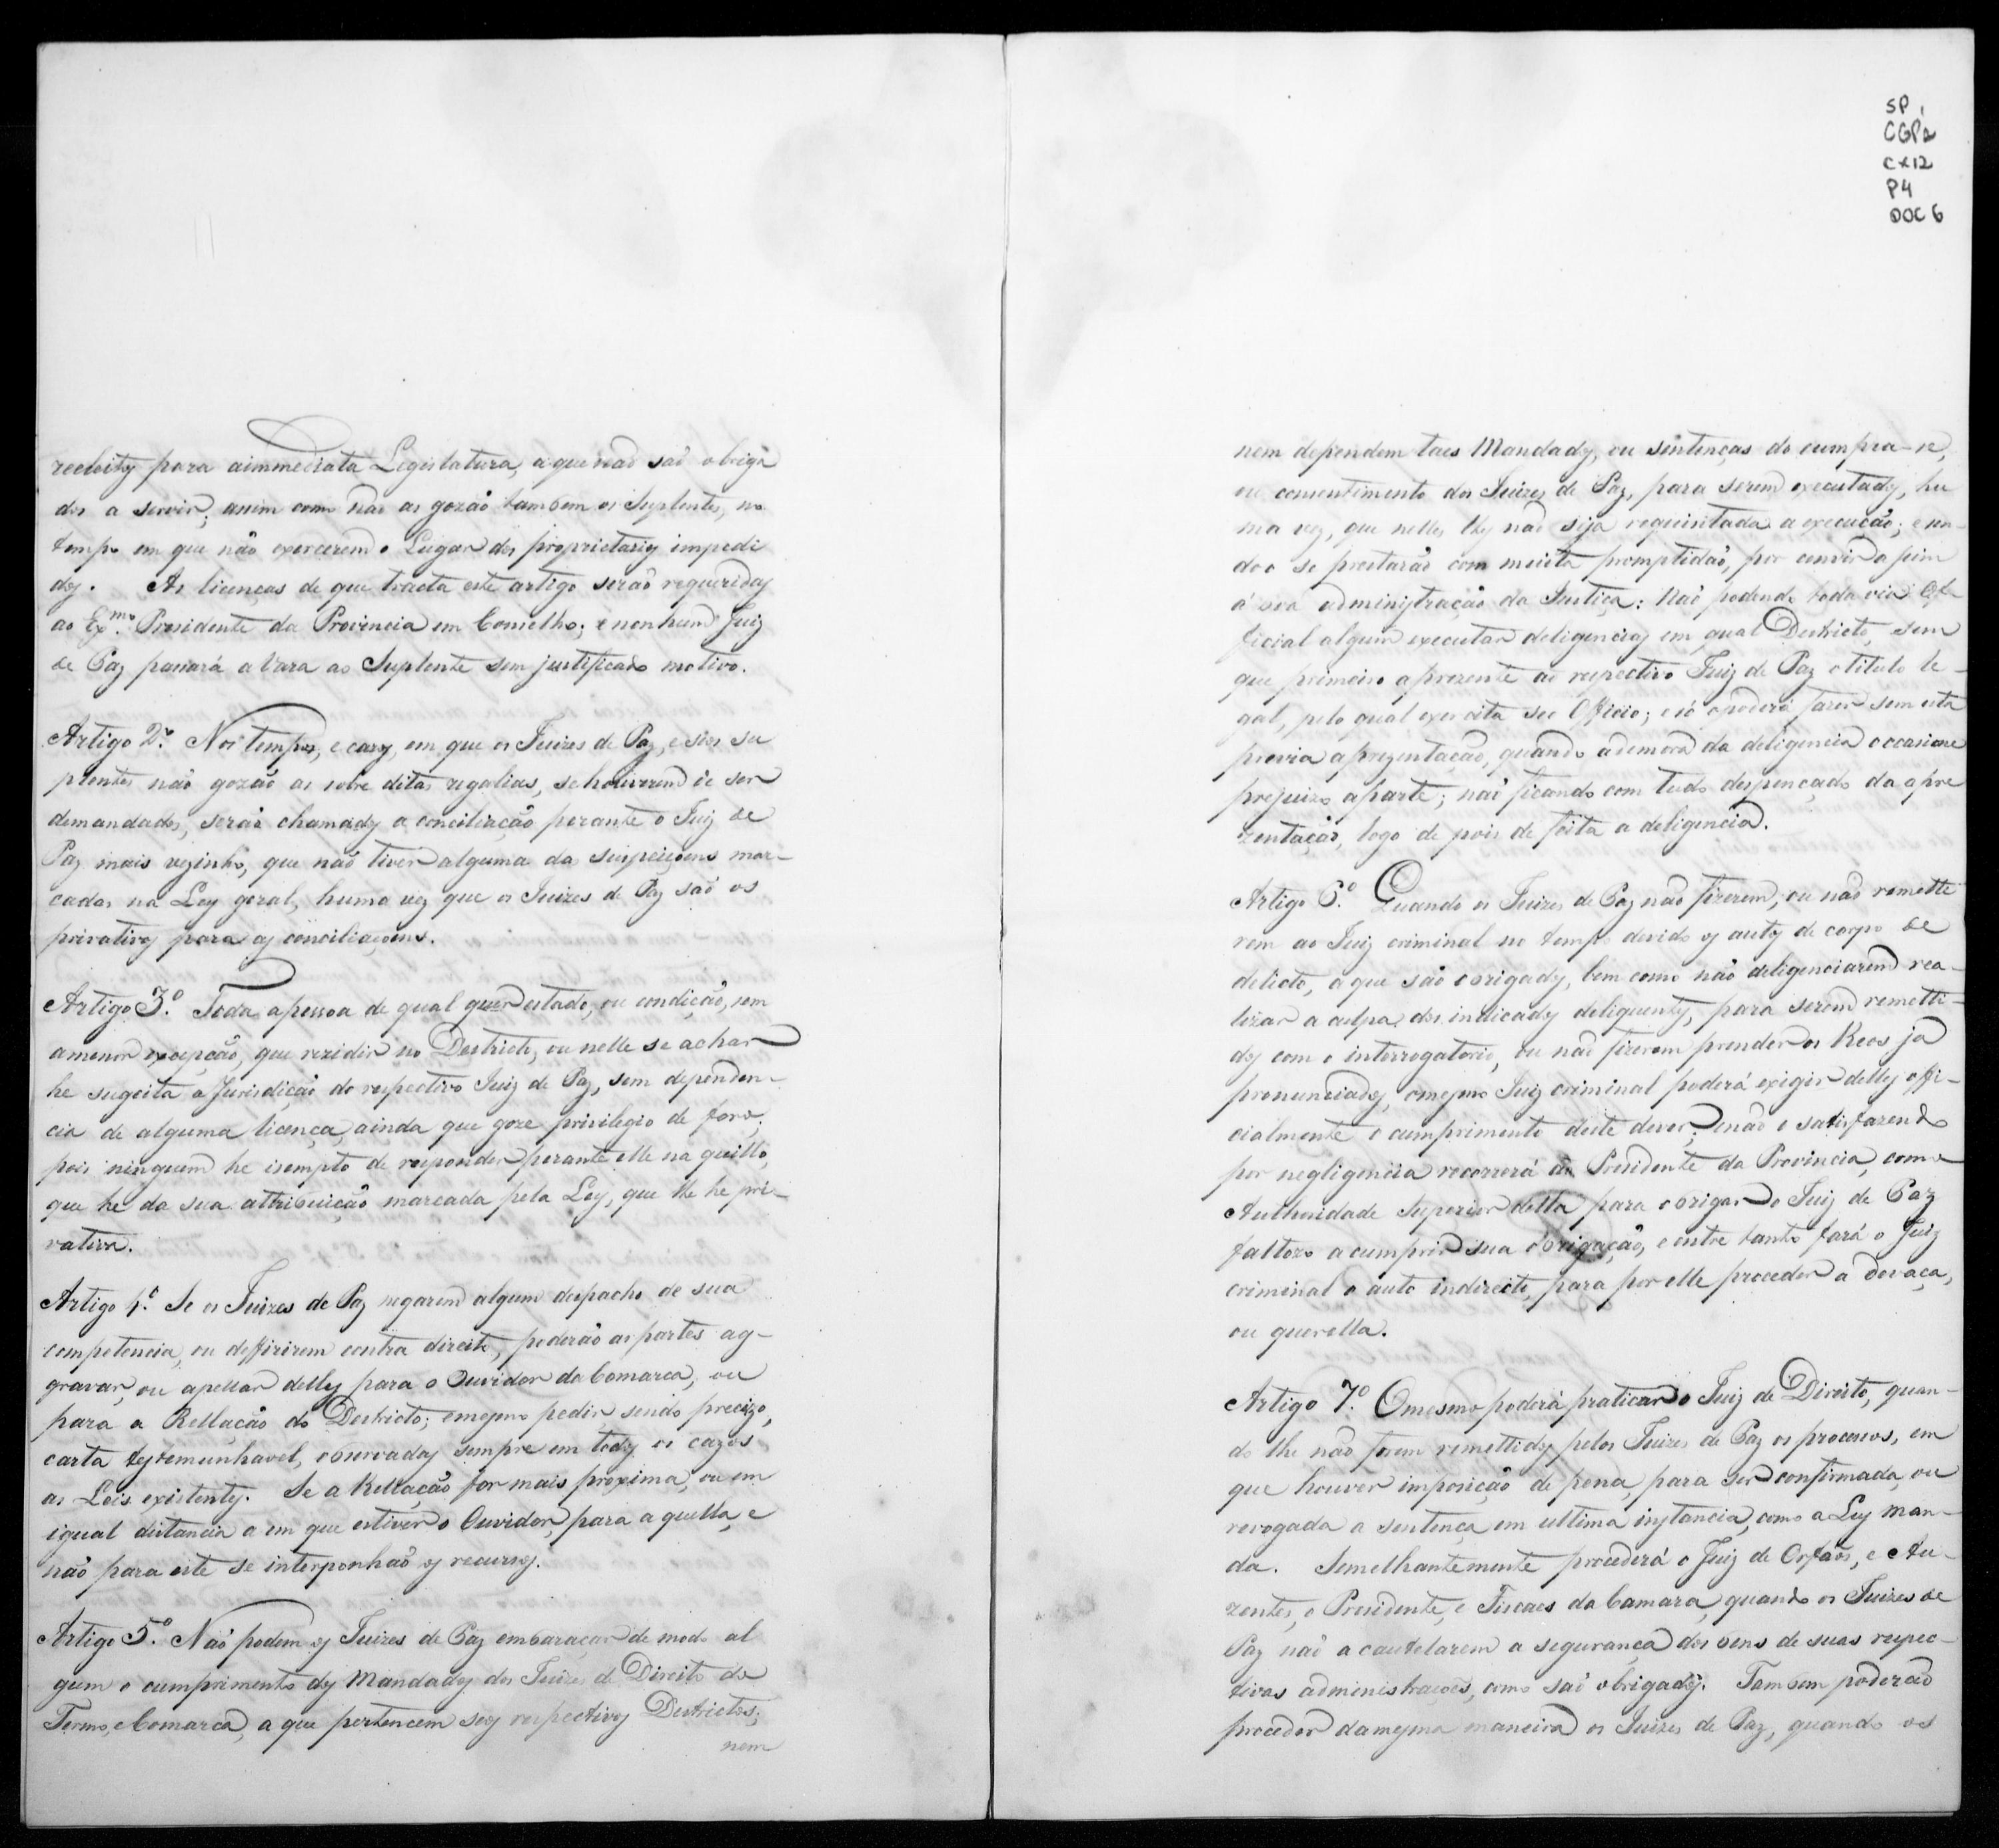 reeleitos para aimmediata Legislatura, aque não são obriga
dos a servir; assim como não as gozão tambem os Suplentes, no
tempo em que não exercerem o Lugar dos proprietarios impedi
dos. As licenças de que tracta este artigo serão requeridas
ao Exmo. Presidente da Provincia em Conselho; e nenhum Juiz
de Paz passará a Vara ao Suplente sem justificado motivo.
Artigo 2º. Nos tempos, e cazos, em que os Juizes de Paz, e seos su
plentes não gozão as sobre ditas regalias, se houverem de ser
demandados, serão chamados a conciliação perante o Juiz de
Paz mais vezinho, que não tiver alguma das suspeiçoens mar-
cadas na Ley geral, huma vez que os Juizes de Paz são os
privativos para as conciliaçoens.
Artigo 3º. Toda apessoa de qual quer estado, ou condição, sem
amenor excepção, que rezidir no Destricto, ou nelle se achar
he sugeita a Jurisdição do respectivo Juiz de Paz, sem dependen-
cia de alguma licença, ainda que goze privilegio de foro;
pois ninguem he isempto de responder perante elle na quillo,
que he da sua attribuição marcada pela Ley, que lhe he pri-
vativa.
Artigo 4º. Se os Juizes de Paz negarem algum despacho de sua
competencia, ou deffirirem contra direito, poderão as partes ag-
gravar, ou apellar delles para o Ouvidor da Comarca, ou
para a Rellação do Destricto; emesmo pedir, sendo precizo,
carta testemunhavel, observadas sempre em todos os cazos
as Leis existentes. Se a Rellação for mais proxima, ou em
igual distancia a em que estiver o Ouvidor, para a quella, e
não para este se interponhão os recursos.
Artigo 5º. Não podem os Juizes de Paz embaraçar de modo al
gum o cumprimento dos Mandados dos Juizes de Direito do
Termo, e Comarca, a que pertencem seos respectivos Destrictos;
nem
SP,
CGP2
CX12
P4
DOC 6
nem dependem taes Mandados, ou sentenças do cumpra-se,
ou consentimento dos Juizes de Paz, para serem executados, hu
ma vez, que nelles lhes não seja requisitada a execução; e sen-
do o se prestarão com muita promptidão, por convir assim
á boa administração da Justiça: Não podendo toda via Of-
ficial algum executar deligencias em qual Destricto, sem
que primeiro aprezente ao respectivo Juiz de Paz o titulo le-
gal, pelo qual exercita seo Officio; e só opoderá fazer sem esta
previa aprezentação, quando ademora da deligencia occasione
prejuizo aparte; não ficando com tudo despençado da apre
zentação, logo de pois de feita a deligencia.
Artigo 6º. Quando os Juizes de Paz não fizerem, ou não remette
rem ao Juiz criminal no tempo devido os autos de corpo de
delicto, a que são obrigados, bem como não deligenciarem rea-
lizar a culpa dos indicados deliquentes, para serem remetti-
dos com o interrogatorio, ou não fizerem prender os Reos já
pronunciados, omesmo Juiz criminal poderá exigir delles offi-
cialmente o cumprimento deste dever; enão o satisfazendo
por negligencia recorrerá ao Presidente da Provincia, como
Authoridade Superior della para obrigar o Juiz de Paz
faltozo a cumprir sua obrigação, e entre tanto fará o Juiz
criminal o auto indirecto, para por elle proceder a devaça,
ou querella.
Artigo 7º. Omesmo poderá praticar o Juiz de Direito, quan-
do lhe não forem remettidos pelos Juizes de Paz os processos, em
que houver imposição de pena, para ser confirmada, ou
revogada a sentença em ultima instancia, como a Ley man-
da. Semelhantemente procederá o Juiz de Orfãos, e Au-
zentes, o Presidente, e Fiscaes da Camara, quando os Juizes de
Paz não a cautelarem a segurança dos bens de suas respec-
tivas administraçoes, como são obrigados. Tambem poderão
proceder damesma maneira os Juizes de Paz, quando os